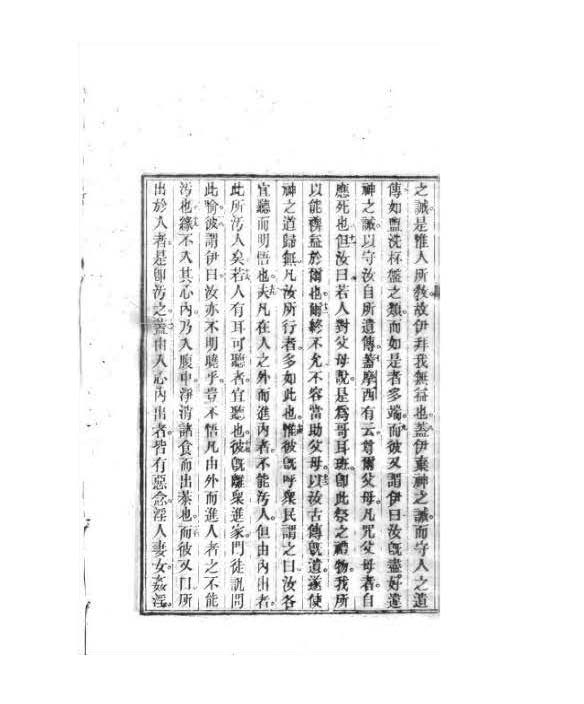 之誡是惟人所敎故伊拜我無益也蓋伊棄神之誡而守人之遺
傳如盥洗杯盤之類而如是者多端而彼又謂伊曰汝旣盡好遣
神之誡以守汝自所遺傳蓋摩西有云尊爾父母凡咒父母者自
應死也但汝曰若人對父母說是爲哥耳班卽此祭之禮物我所
以能裨益於爾也爾終不允不容當助父母以汝古傳旣道遂使
神之道歸無凡汝所行者多如此也惟彼旣呼衆民謂之曰汝各
宜聽而明悟也夫凡在人之外而進內者不能汚人但由內出者
此所汚人矣若人有耳可聽者宜聽也彼旣離衆進家門徒訊問
此喻彼謂伊曰汝亦不明曉乎豈不悟凡由外而進人者之不能
汚也緣不入其心內乃入腹中淨消諸食而出茶也而彼又曰所
出於人者是卽汚之蓋由人心內出者皆有惡念淫人妻女姦淫